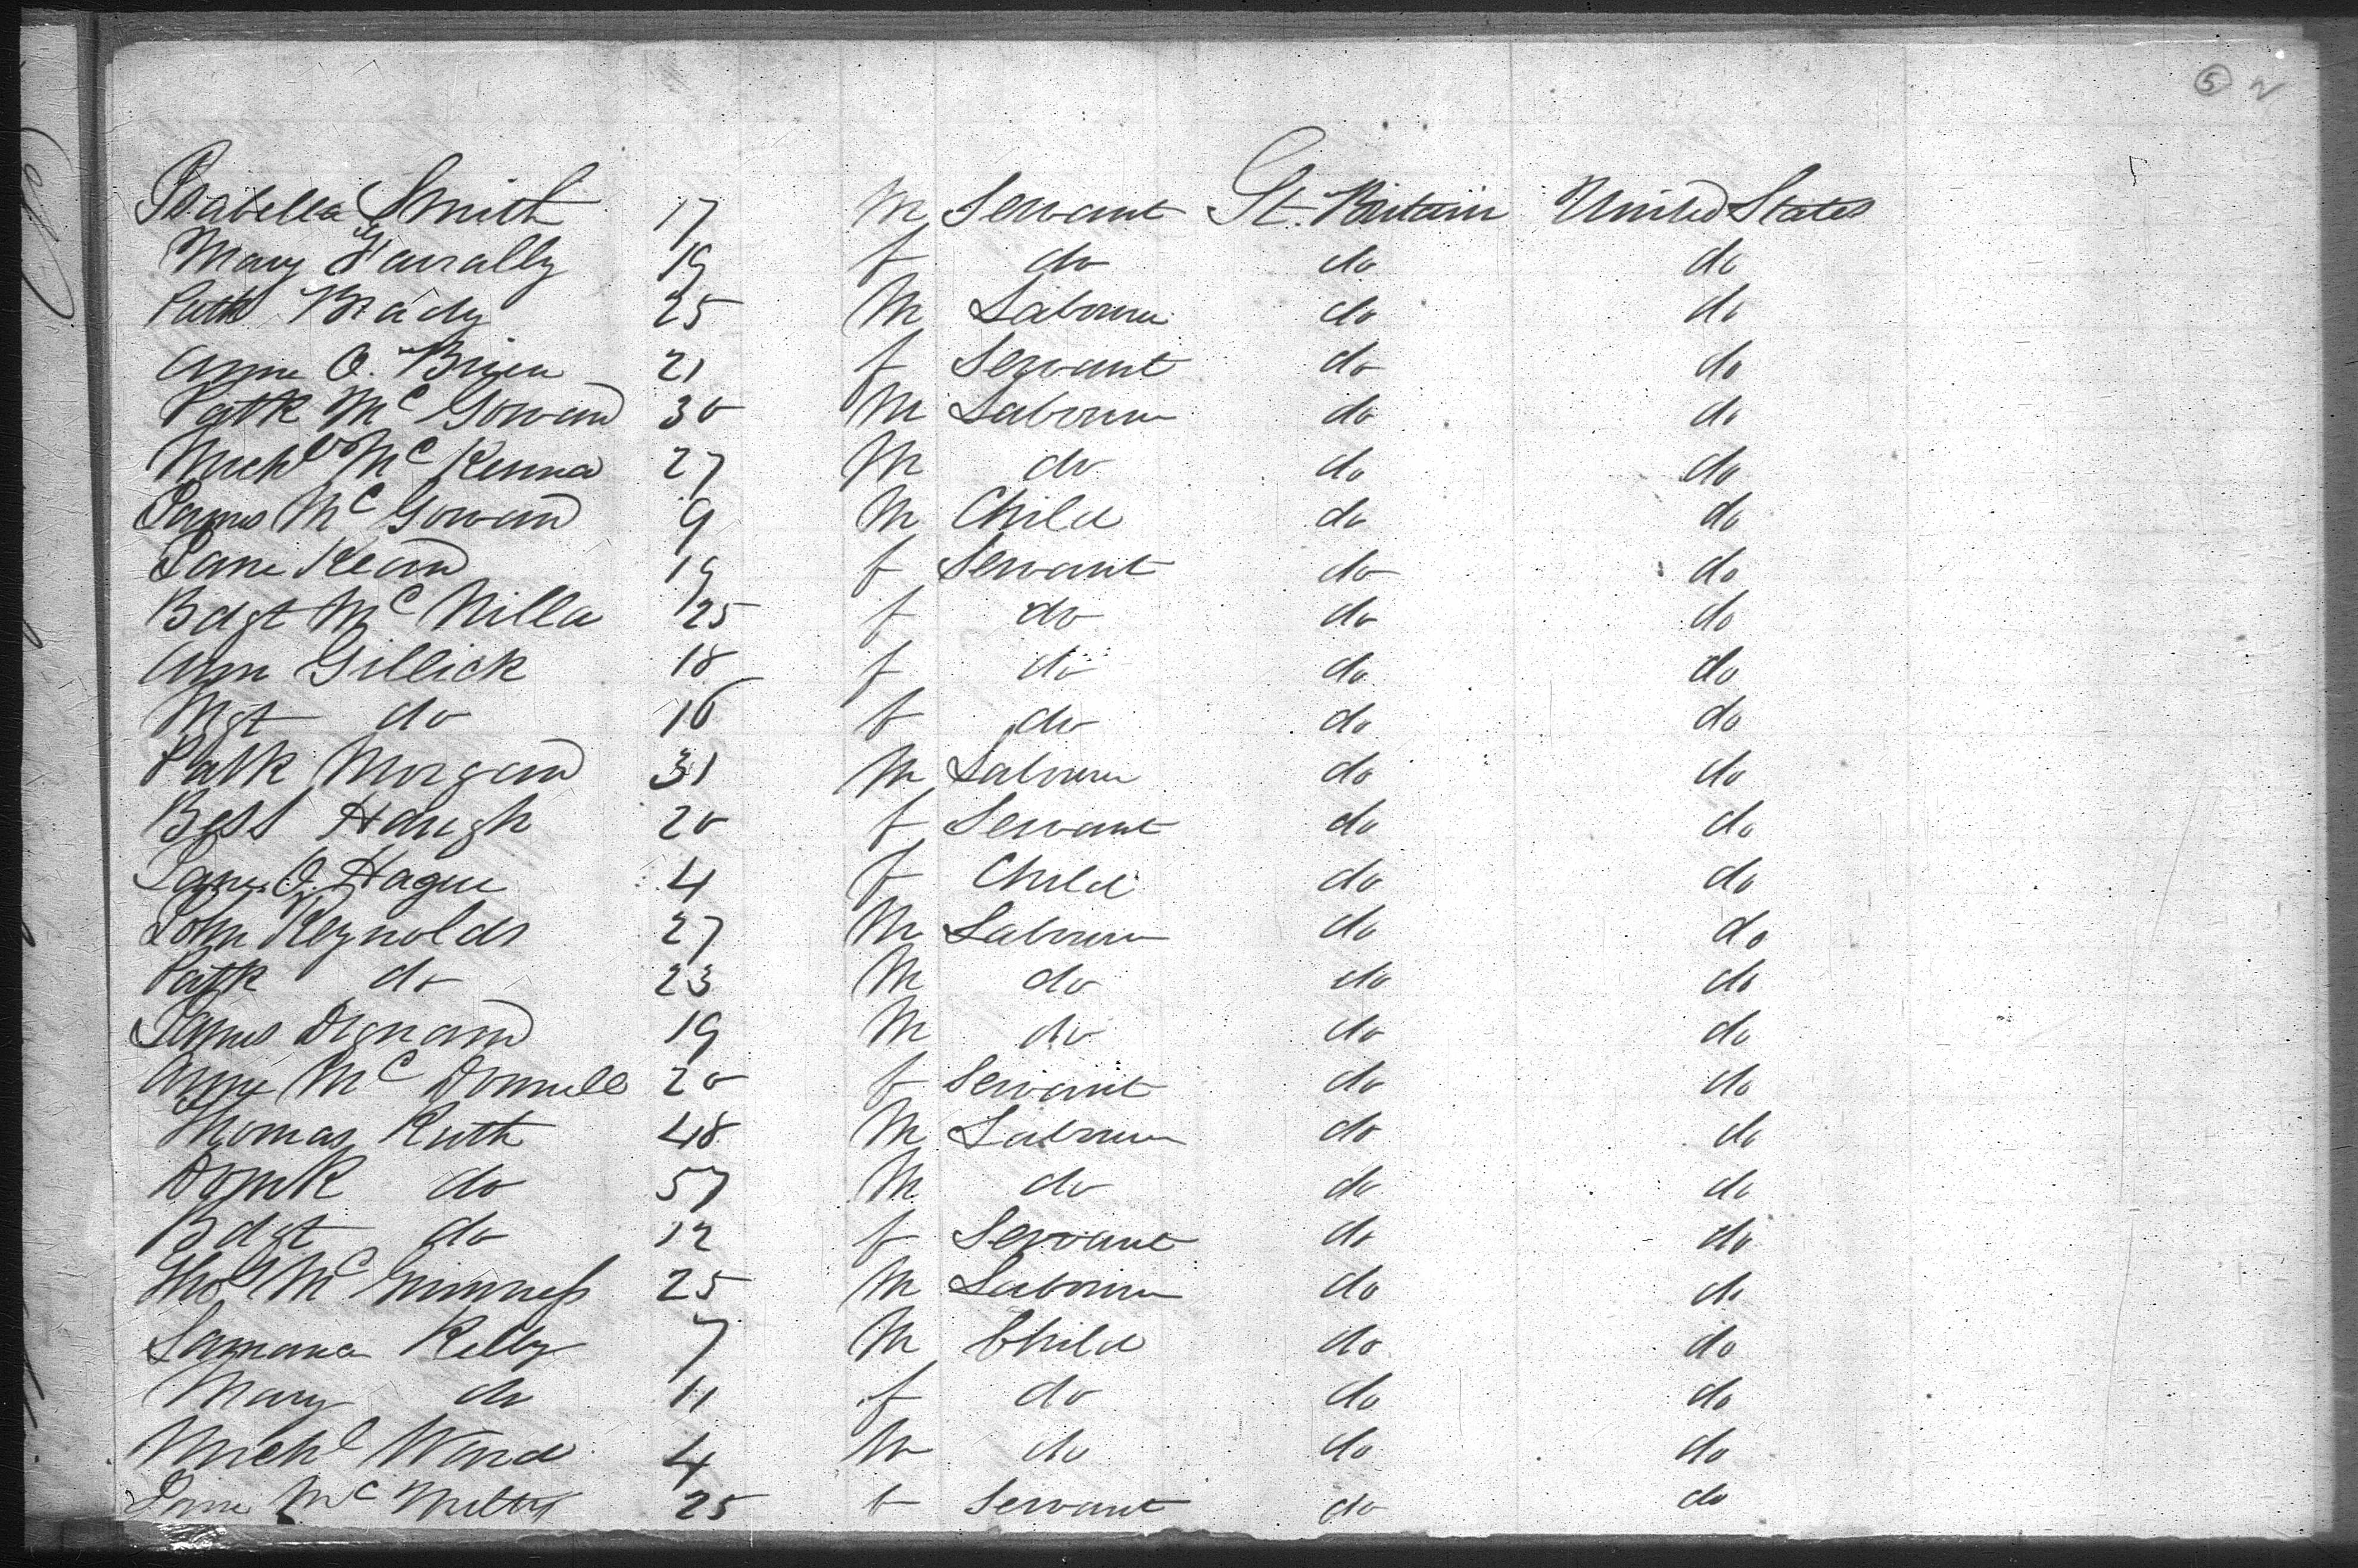 5 2
Isabella Smith 17 M Servant Gt. Britain United States
Mary Farrally 19 f do do do
Patk Brady 25 M Labourer do do
Anne O. Brien 21 f Servant do do
Patk Mc Gowan 30 M Labourer do do
Michl Mc Kenna 27 M do do do
James Mc Gowan 9 M Child do do
Jane Kean 19 f Servant do do
Bdgt Mc Nilla 25 f do do do
Ann Gillick 18 f do do do
Mgt do 16 f do do do
Patk Morgan 31 M Labourer do do
Bess Haugh 20 f Servant do do
Jane O. Hague 4 f Child do do
John Reynolds 27 M Labourer do do
Patk do 23 M do do do
James Dignan 19 M do do do
Anne Mc Donnell 20 f Servant do do
Thomas Ruth 48 M Labourer do do
Domk do 57 M do do do
Bdgt do 12 f Servant do do
Thos Mc Guinness 25 M Labourer do do
Kelly 7 M Child do do
Mary do 11 f do do do
Michl Ward 4 M do do do
Jane Mc 25 f Servant do do